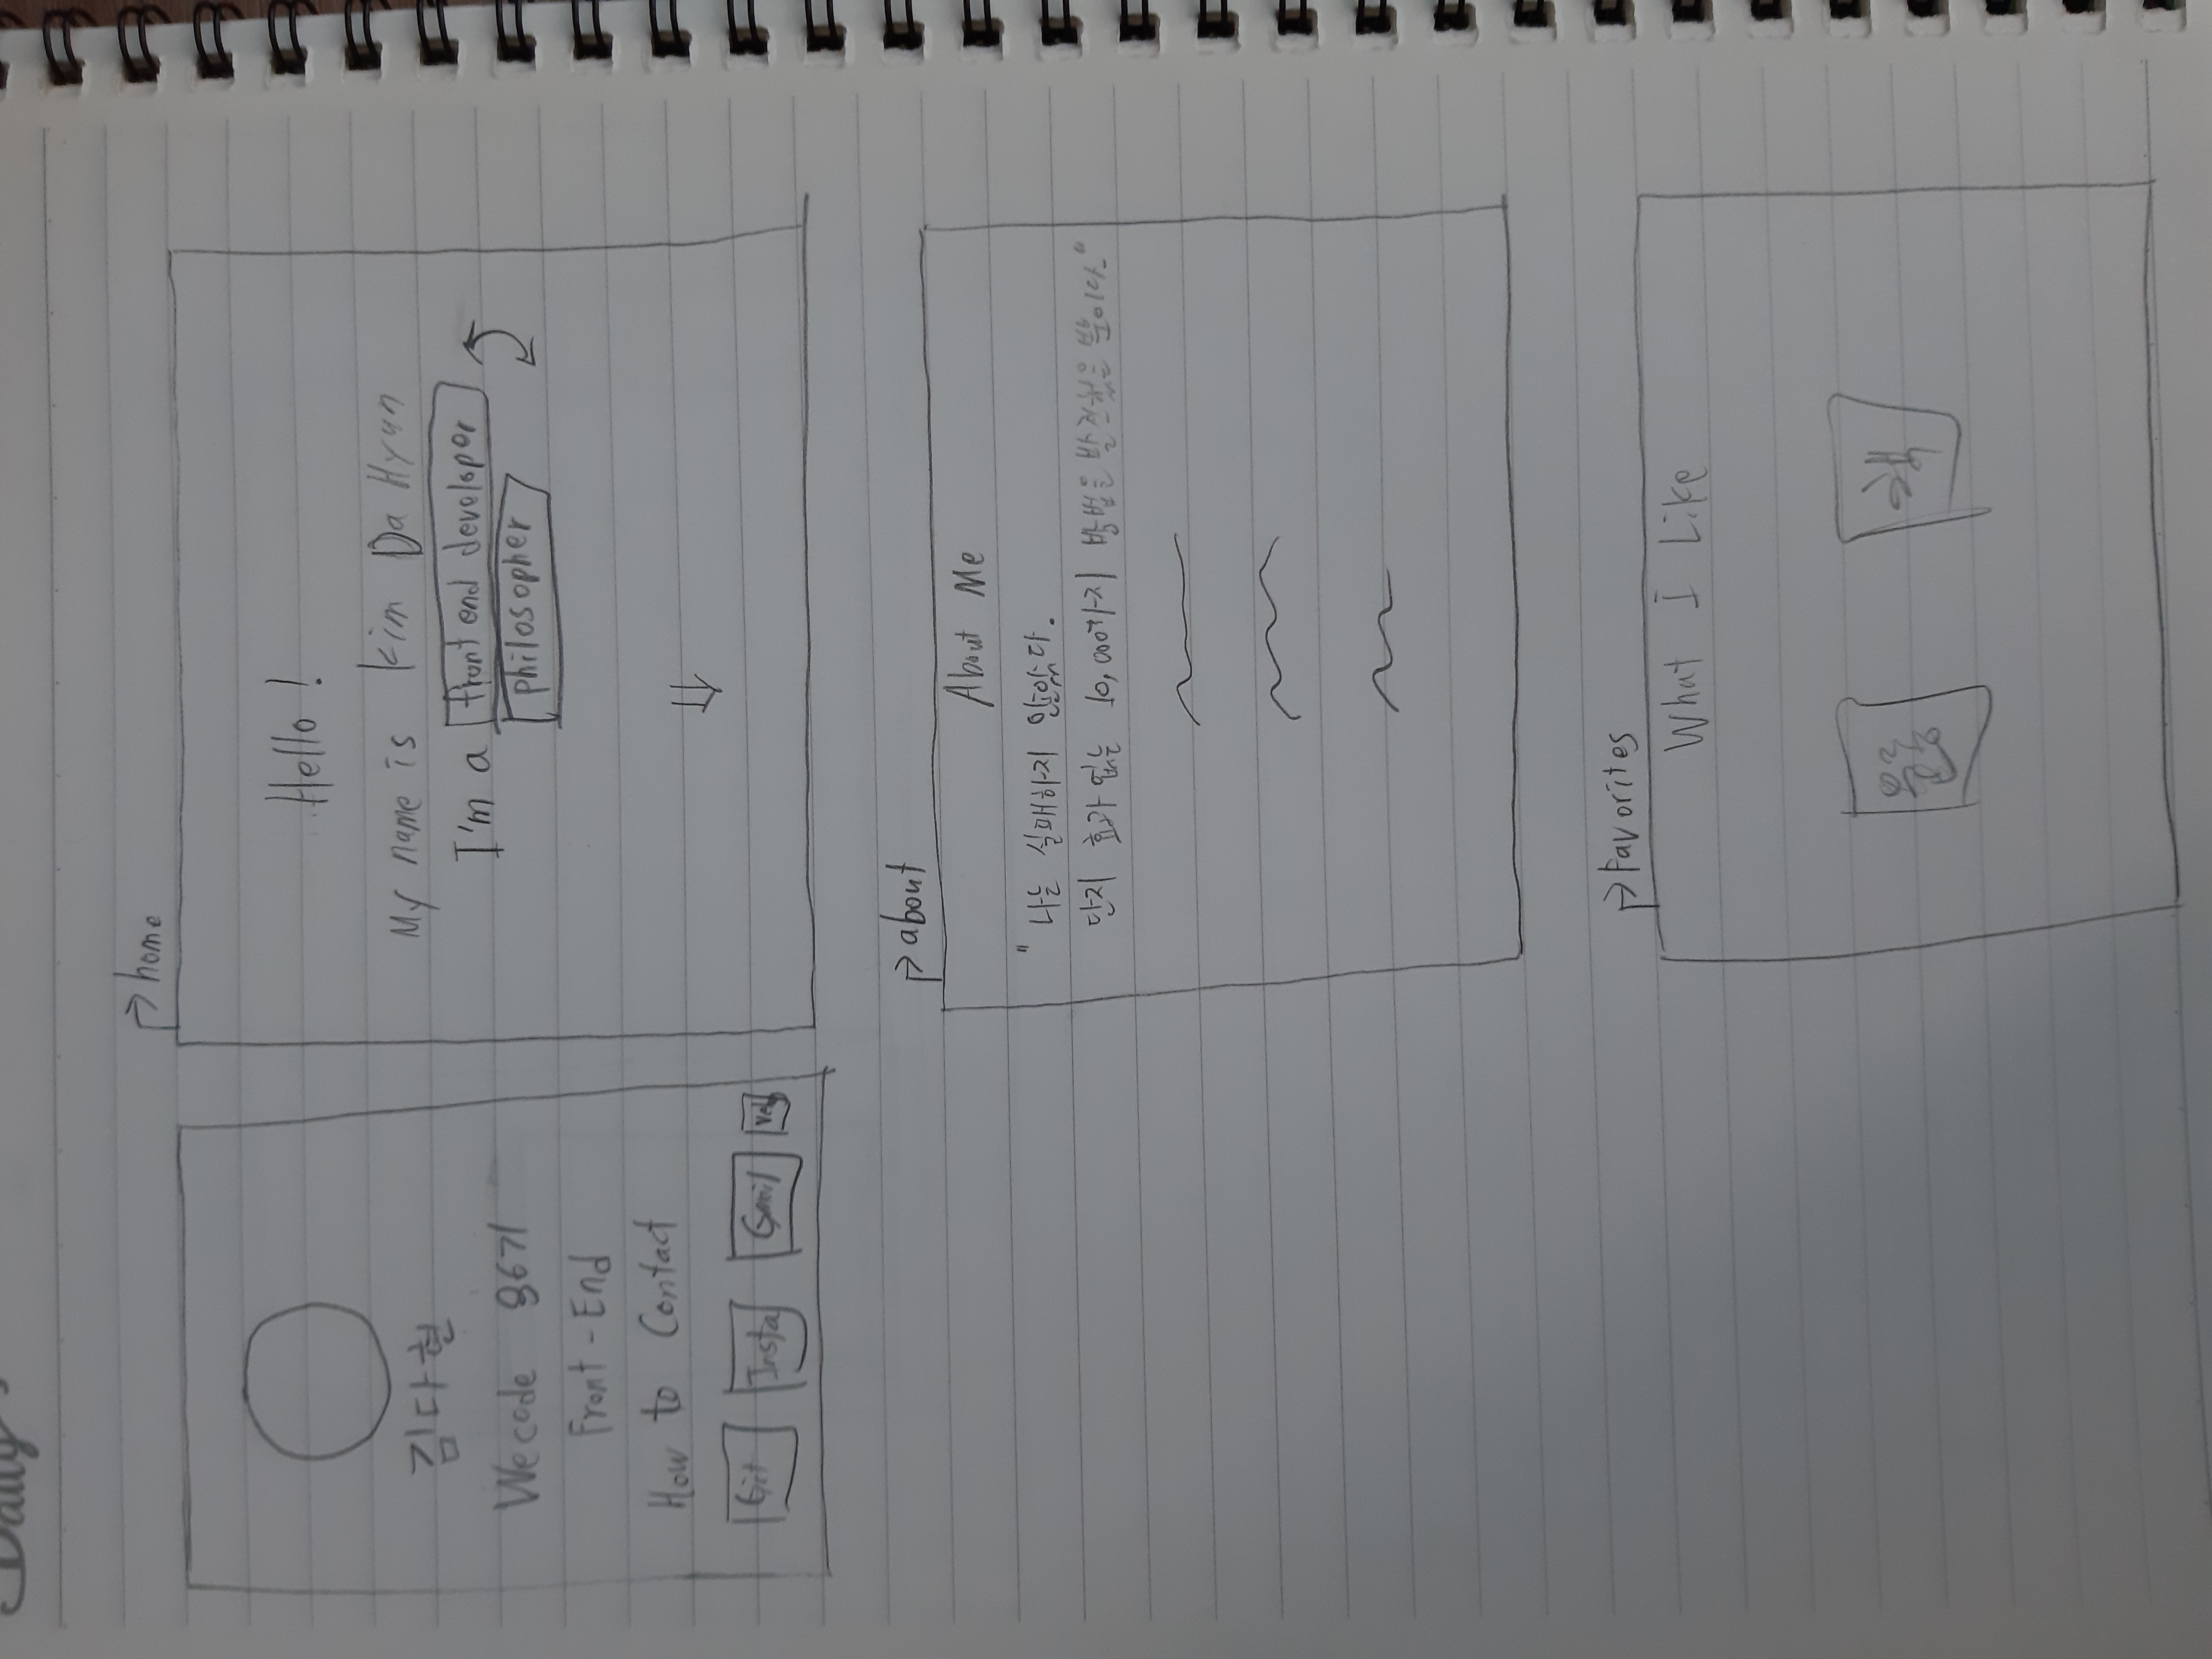 Daily
김다현
Wecode 36기
Front-End
How to Contact
Git Insta Gmail
home
Hello!
My name is Kim Da Hyun
I'm a front end developer
philosopher
about
About Me
"나는 실패하지 않았다.
단지 효과 없는 10,000가지 방법을 발견했을 뿐이다."
Favorites
What I Like
운동 책